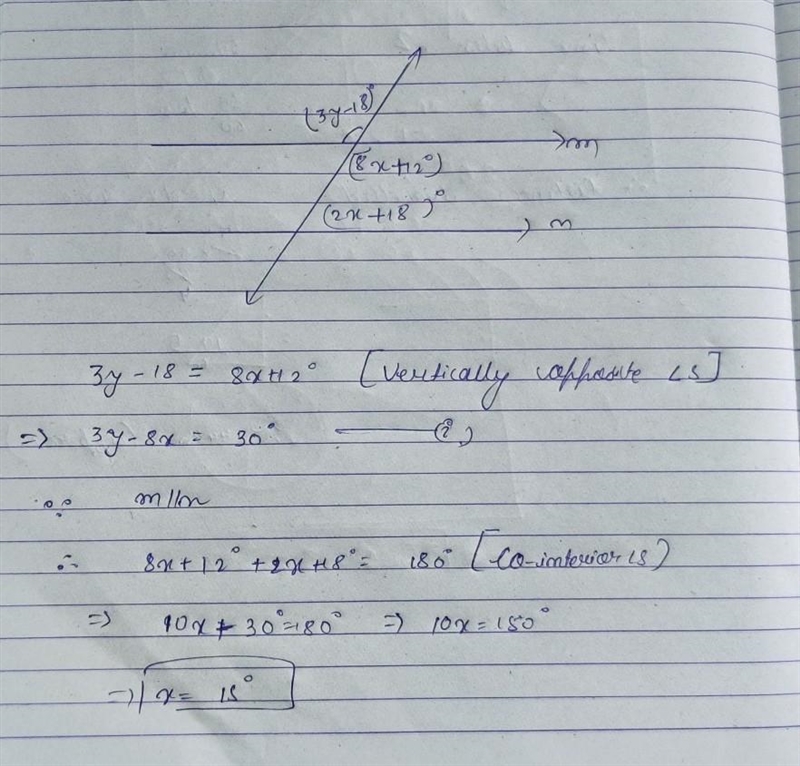 (3y-18)°
m
(8x+12°)
(2x+18)°
n
3y-18 = 8x+12° [Vertically opposite ∠s]
=> 3y-8x = 30° —— (i)
∵ m||n
∴ 8x+12°+2x+18° = 180° [Co-interior ∠s)
=> 10x+30°=180° => 10x=150°
=> x= 15°